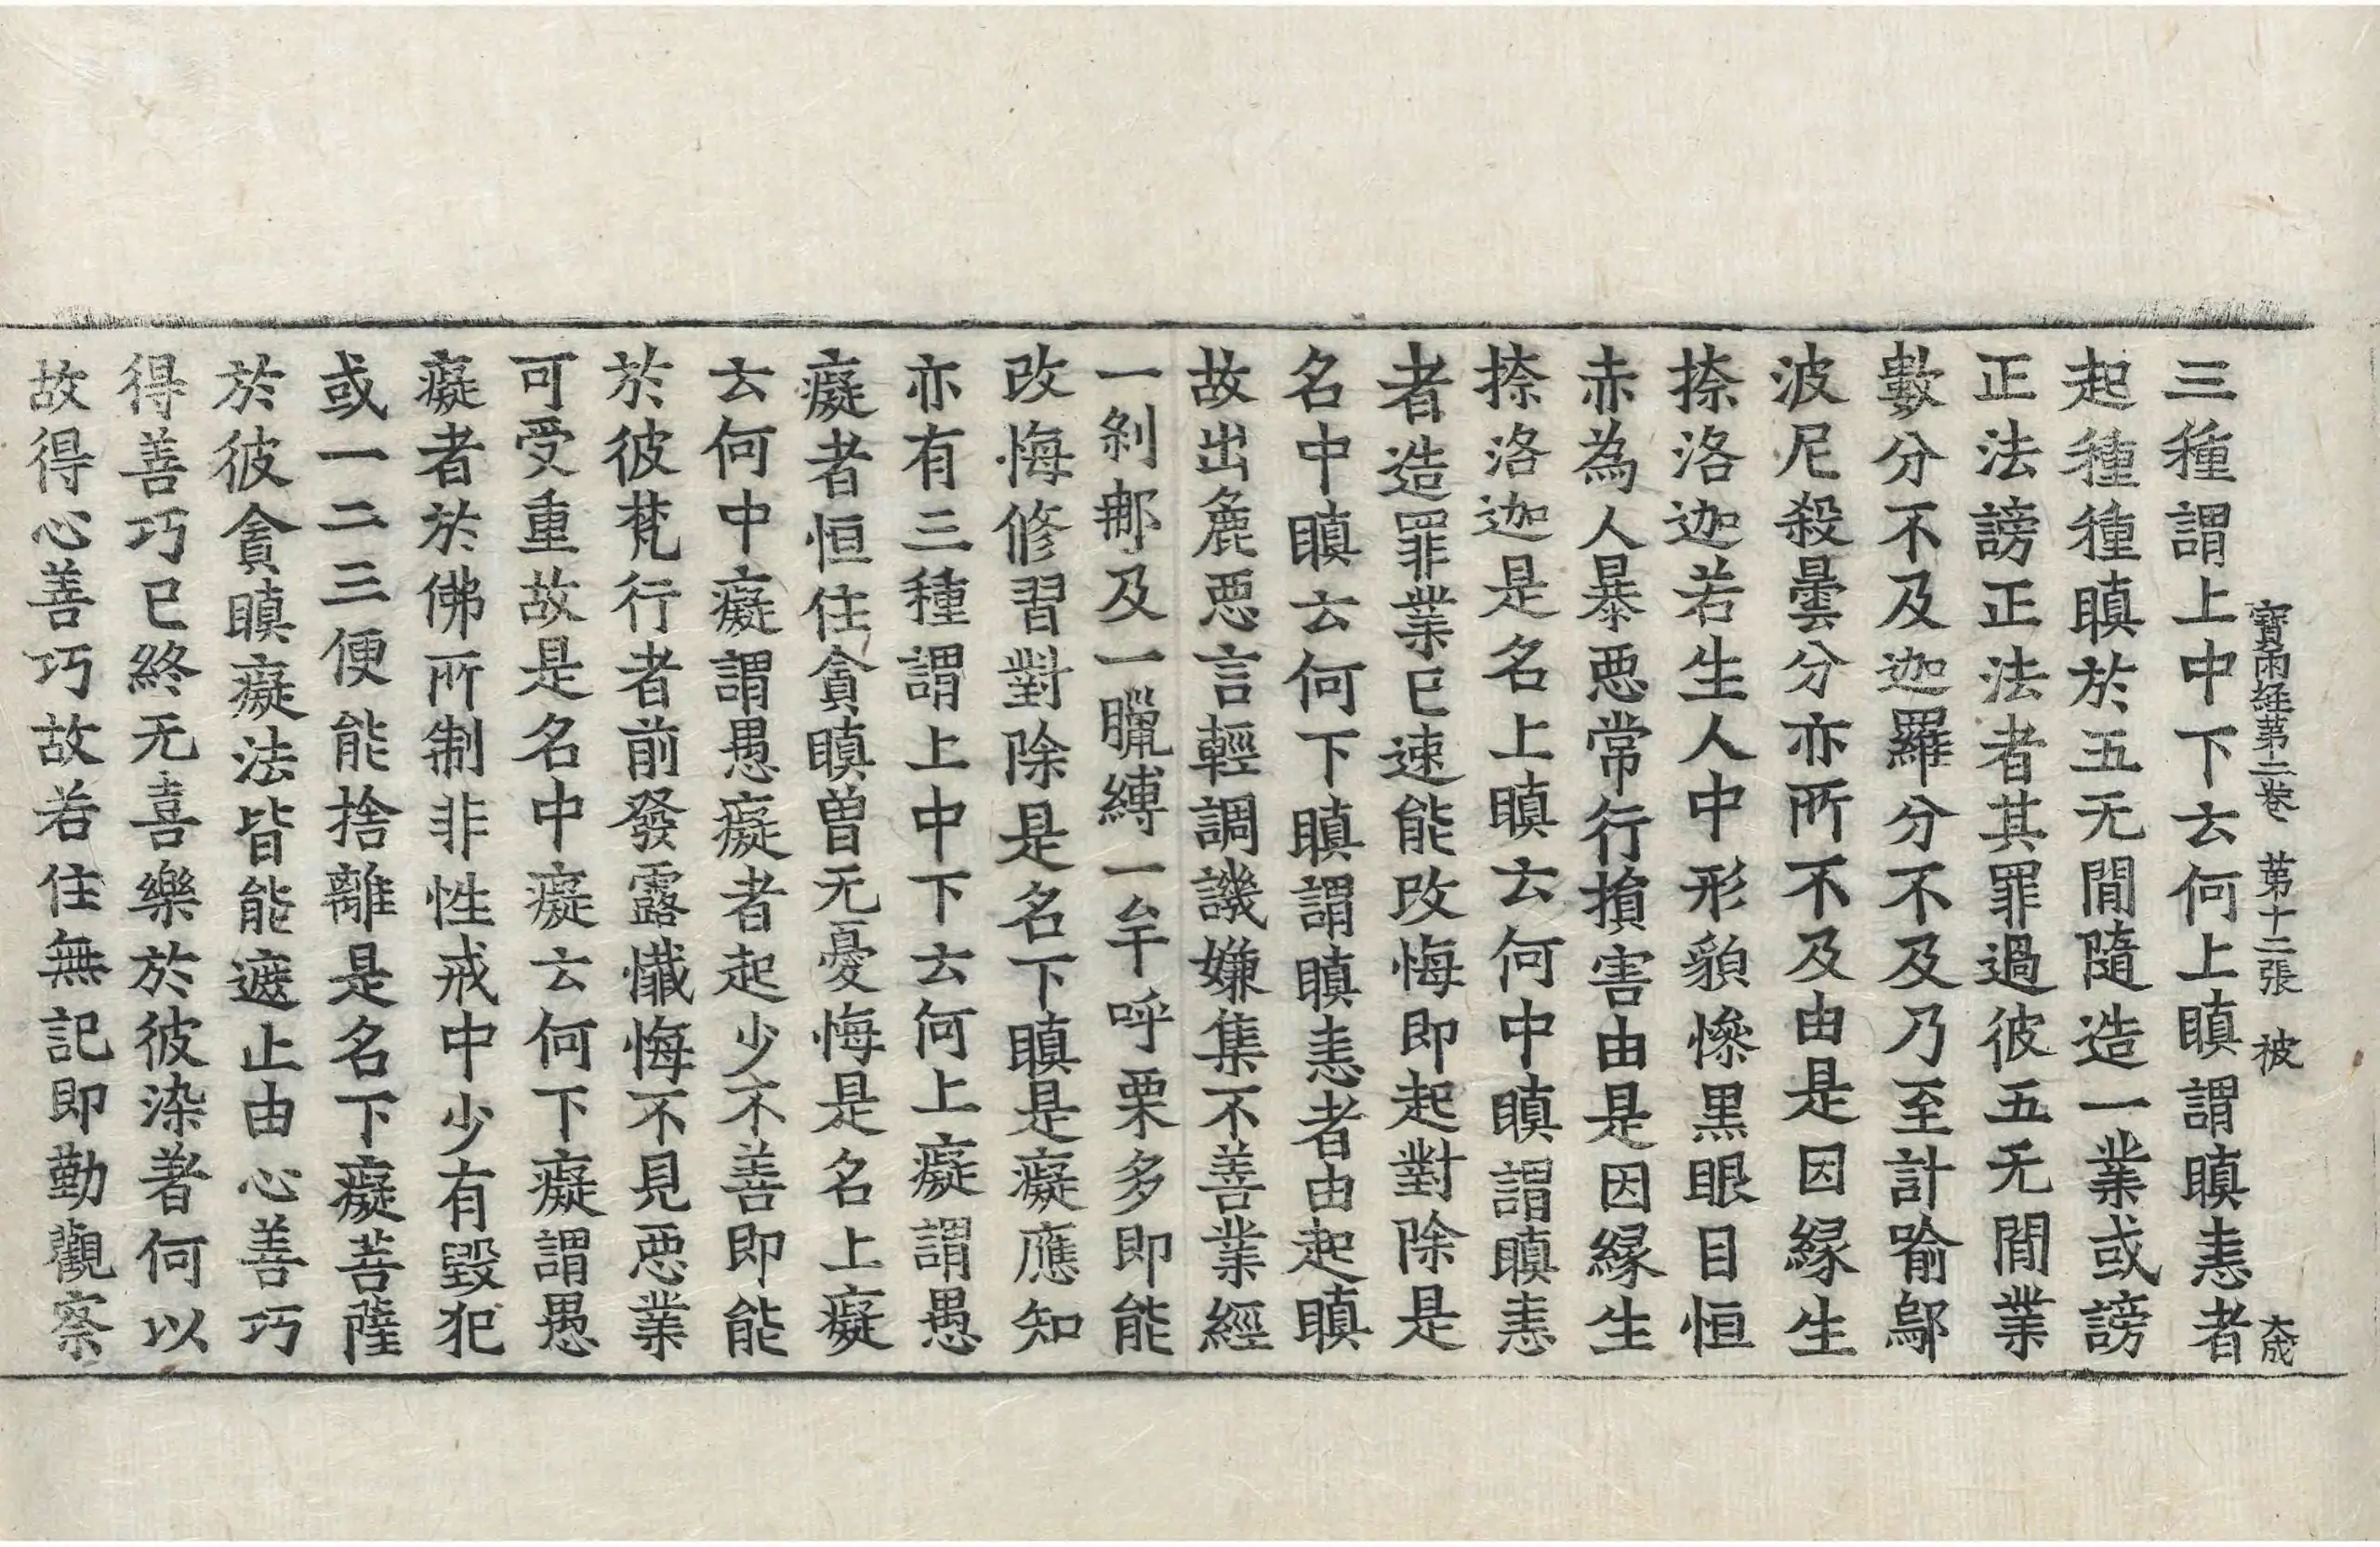 寶雨經第二卷　第十二張　被　大成
三種謂上中下云何上瞋謂瞋恚者
起種種瞋於五无間隨造一業或謗
正法謗正法者其罪過彼五无間業
數分不及迦羅分不及乃至計喻鄔
波尼殺曇分亦所不及由是因緣生
捺洛迦若生人中形貌慘黑眼目恒
赤為人暴惡常行損害由是因緣生
捺洛迦是名上瞋云何中瞋謂瞋恚
者造罪業已速能改悔即起對除是
名中瞋云何下瞋謂瞋恚者由起瞋
故出麁惡言輕調譏嫌集不善業經
一剎那及一臘縛一牟呼栗多即能
改悔修習對除是名下瞋是癡應知
亦有三種謂上中下云何上癡謂愚
癡者恒住貪瞋曾无憂悔是名上癡
云何中癡謂愚癡者起少不善即能
於彼梵行者前發露懺悔不見惡業
可受重故是名中癡云何下癡謂愚
癡者於佛所制非性戒中少有毀犯
或一二三便能捨離是名下癡菩薩
於彼貪瞋癡法皆能遮止由心善巧
得善巧已終无喜樂於彼染著何以
故得心善巧故若住無記即勤觀察